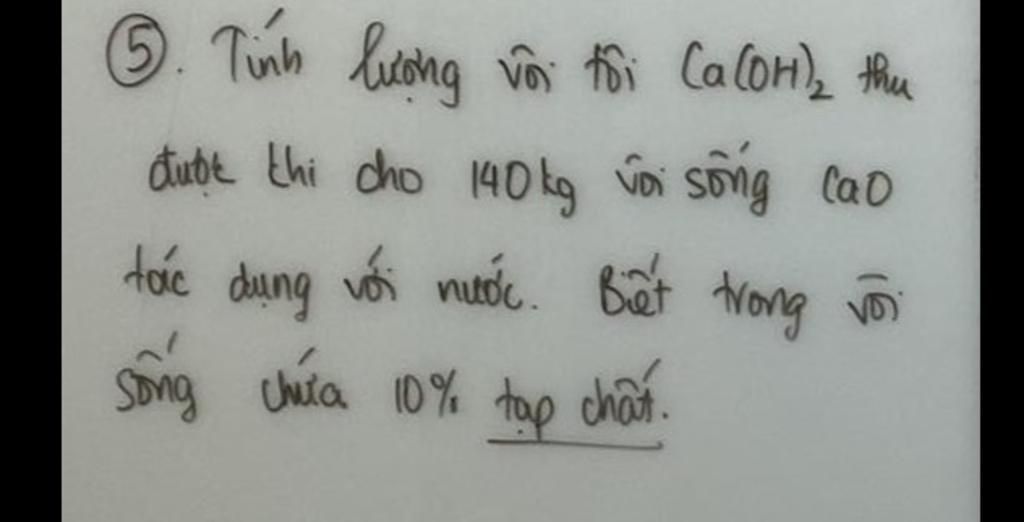 ⑤. Tính lượng vôi tôi Ca(OH)₂ thu
được thi cho 140kg vôi sống CaO
tác dụng với nước. Biết trong vôi
sống chứa 10% tạp chất.